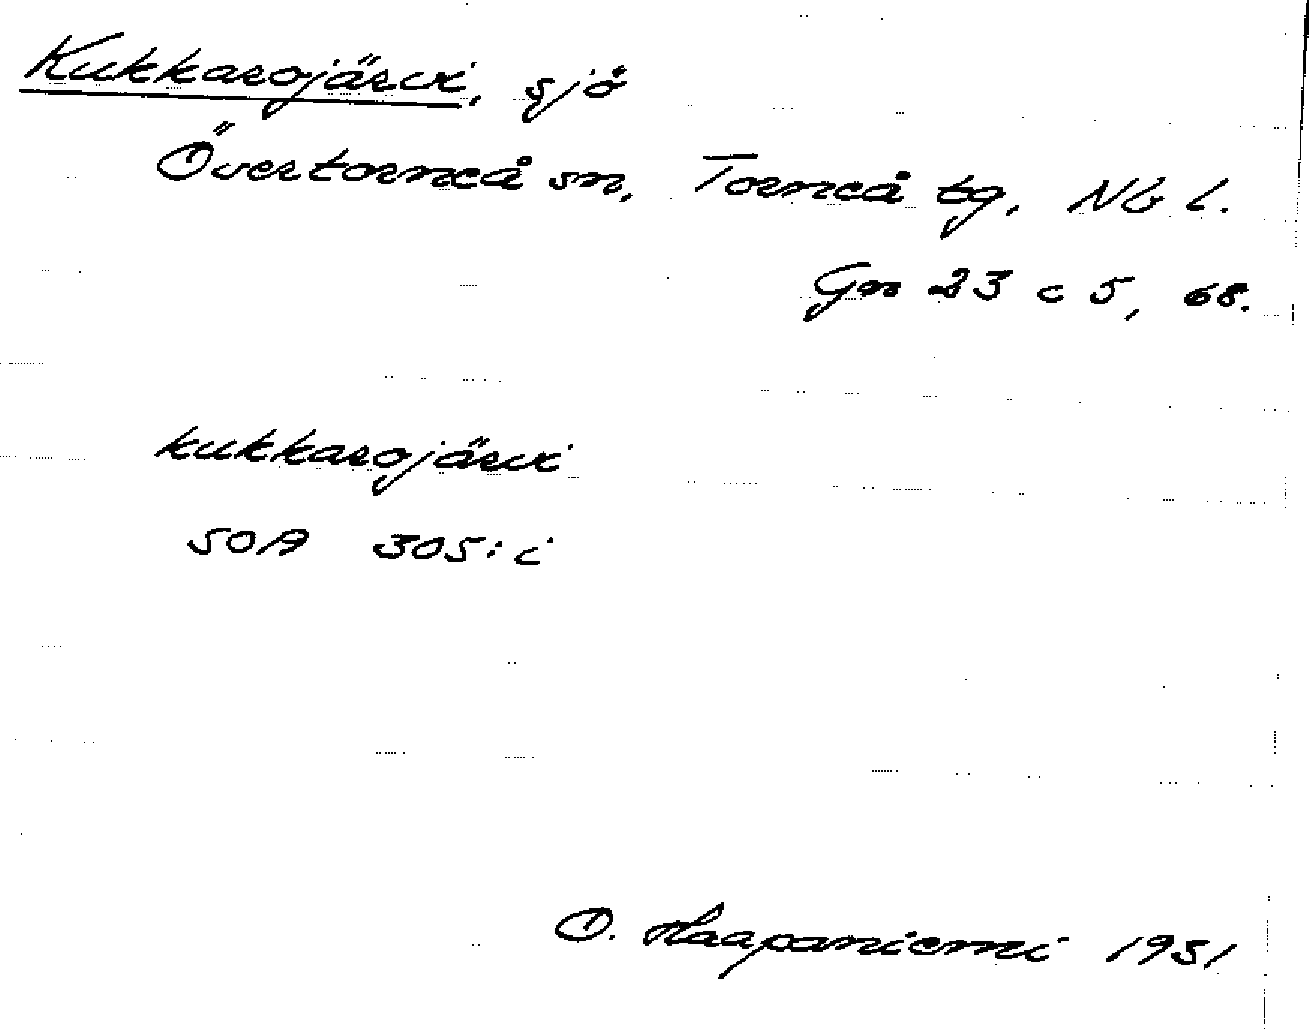 Kukkarojärvi, sjö
Övertorneå sn, Torneå tg, Nb l.
Gn 23 c 5, 68.
kukkarojärvi
SOA 305:i
O. Haapaniemi 1951